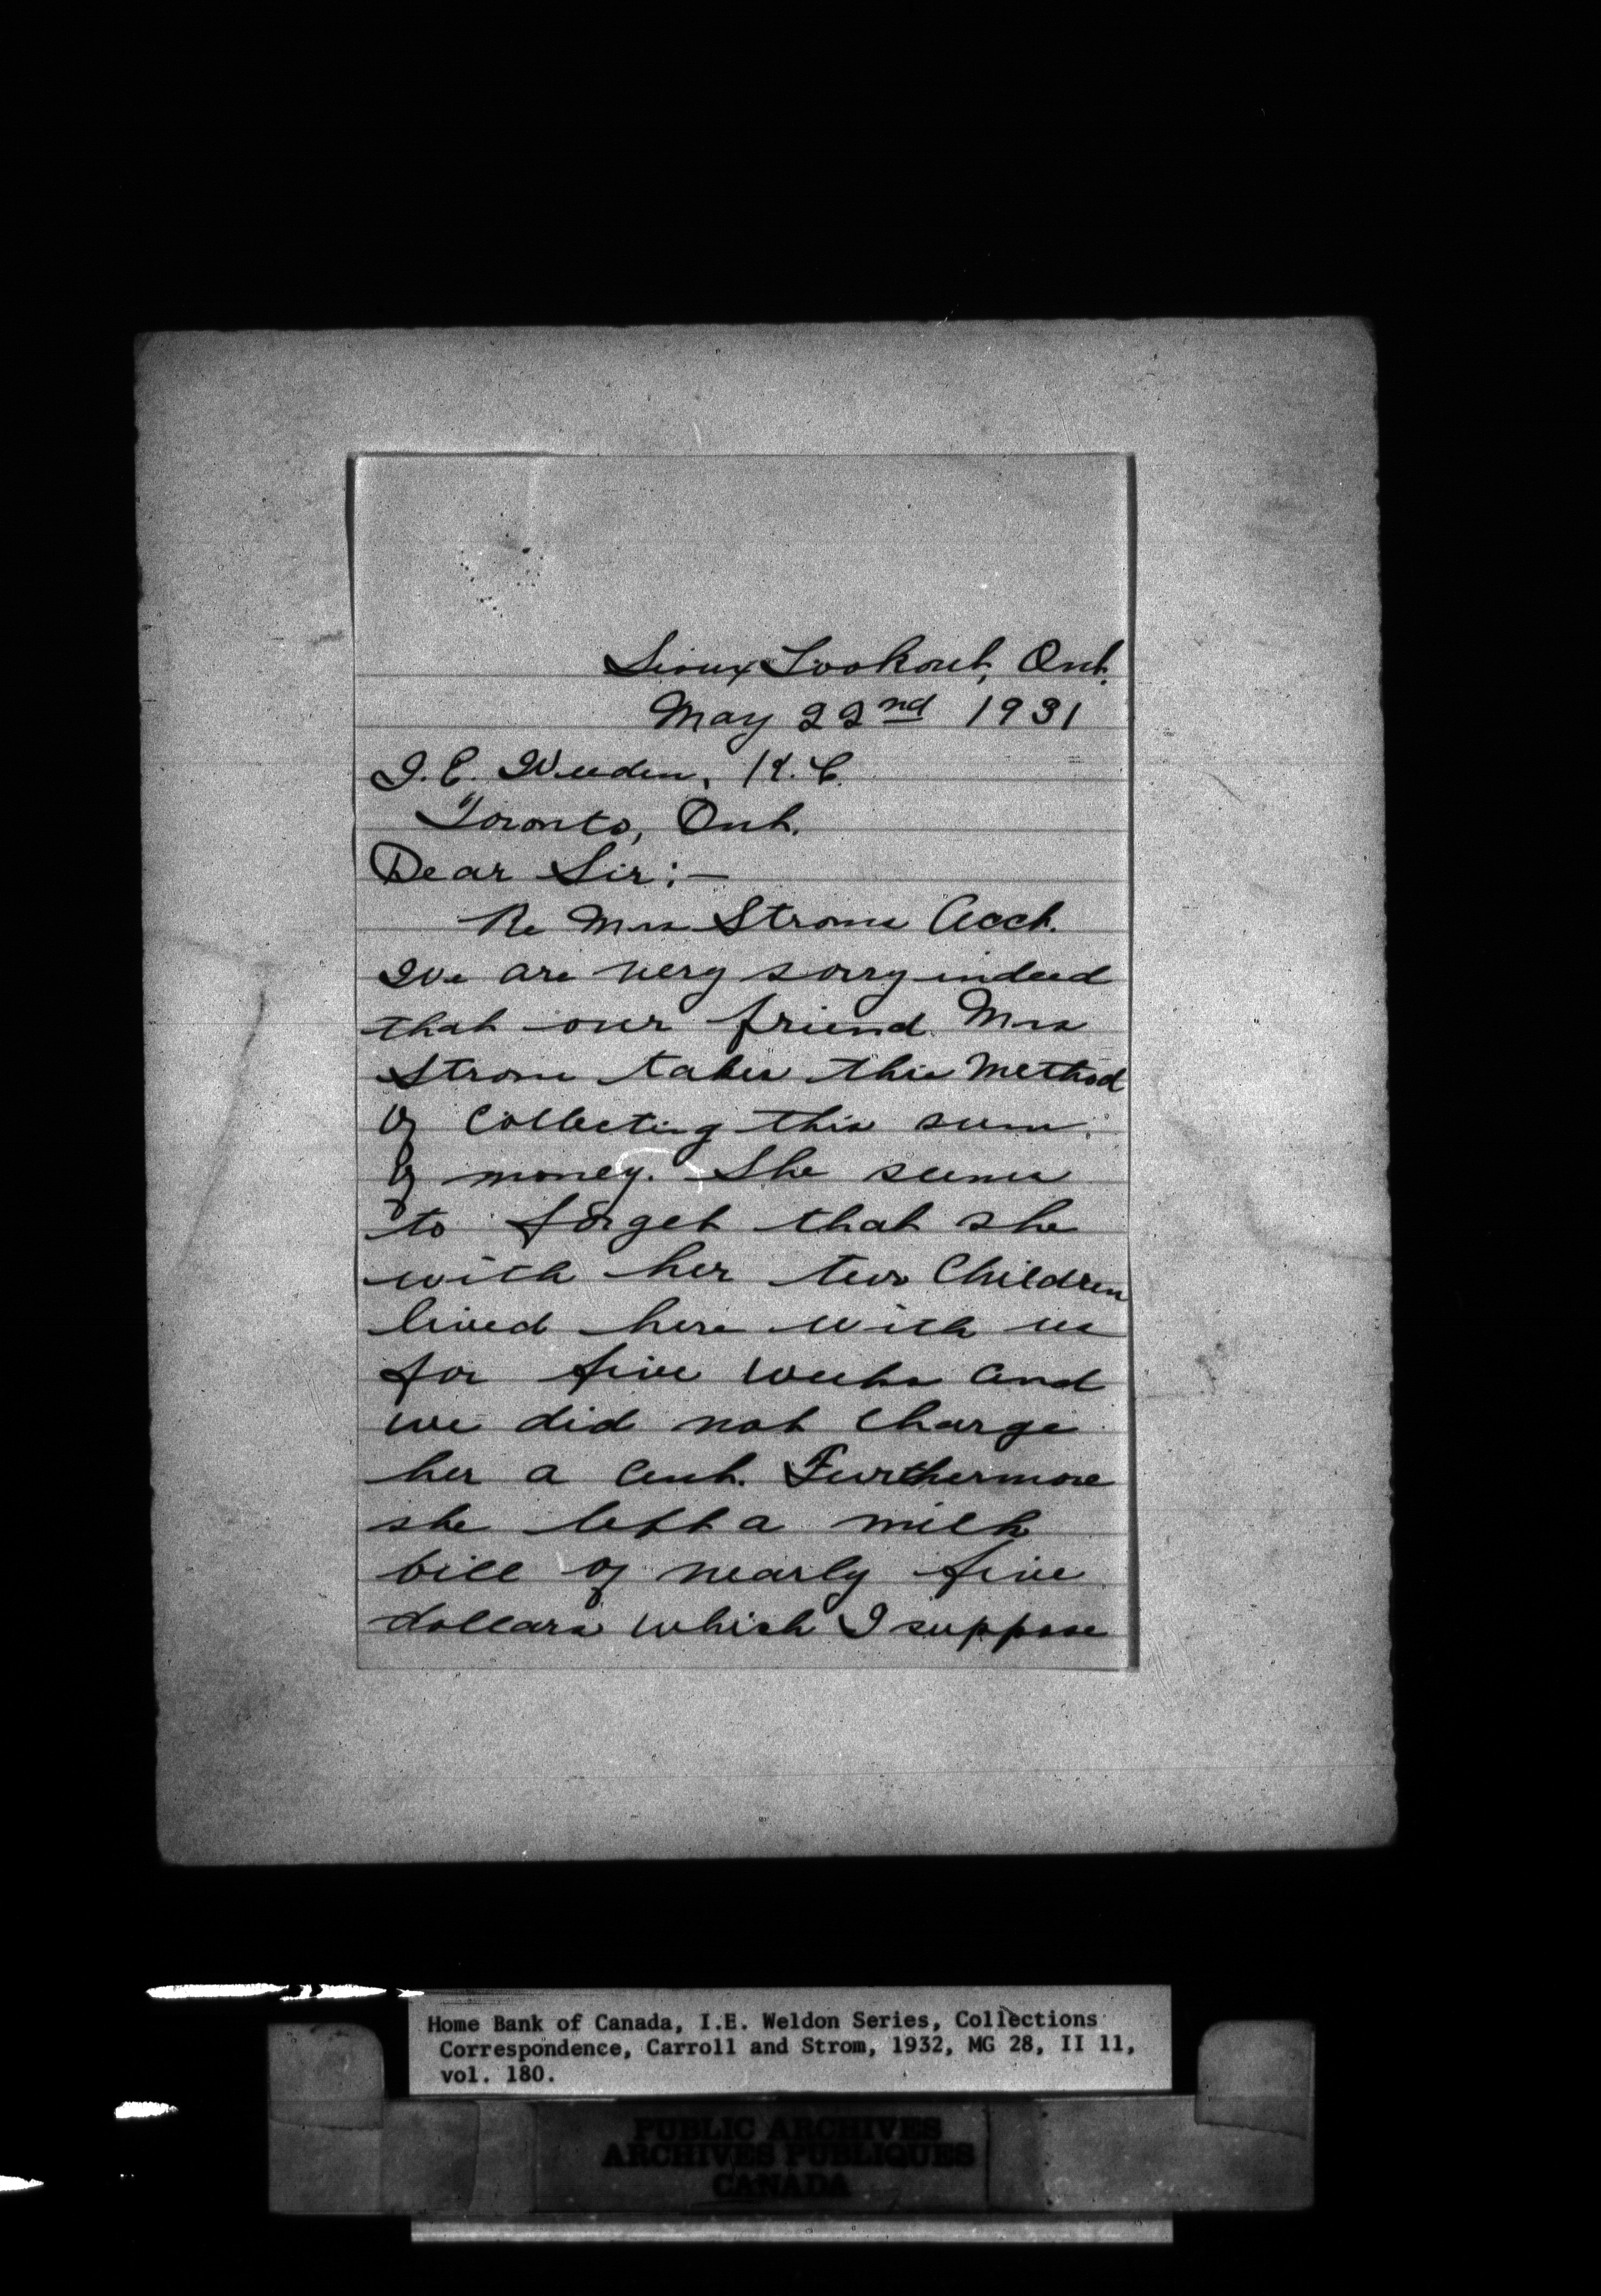 Sioux Lookout, Ont.
May 22nd 1931
I. E. Weedon, K.C.
Toronto, Ont.
Dear Sir:-
Re Mrs Strom Acct.
We are very sorry indeed
that our friend Mrs
Strom takes this method
of collecting this sum
of money. She seems
to forget that she
with her two Children
lived here with us
for five weeks and
we did not charge
her a cent. Furthermore
she left a milk
bill of nearly five
dollars which I suppose
Home Bank of Canada, I.E. Weldon Series, Collections
Correspondence, Carroll and Strom, 1932, MG 28, II 11,
vol. 180.
PUBLIC ARCHIVES
ARCHIVES PUBLIQUES
CANADA